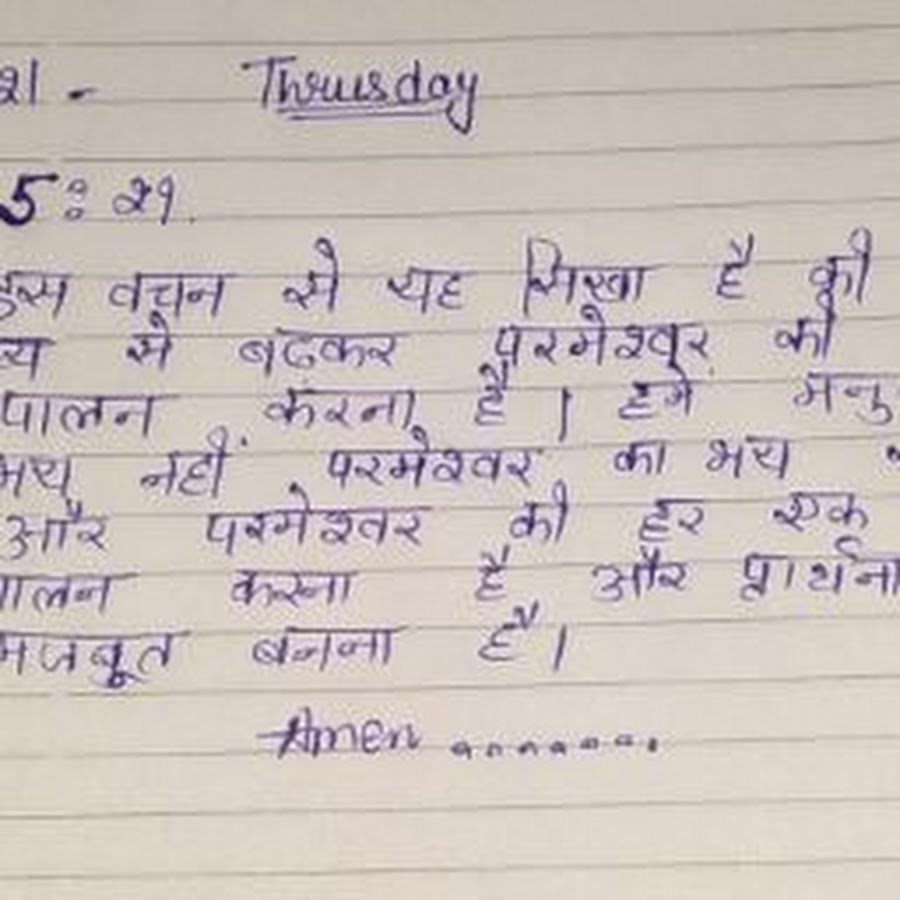 21 - Thrusday
5 : 29.
इस वचन से यह सिखा है की
से बढकर परमेश्वर की
पालन करना है । हमे मनु
भय नहीं परमेश्वर का भय
और परमेश्वर की हर एक
पालन करना है और प्रार्थना
मजबूत बनना है ।
Amen ........